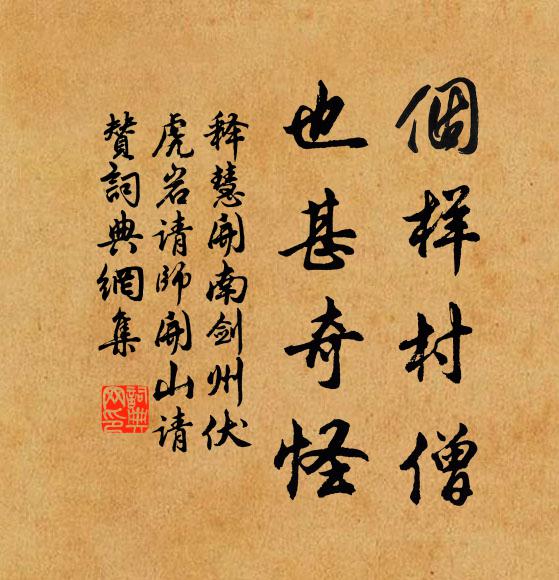 個样村僧
也甚奇怪
释慧開南剑州伏
虎岩请师開山请
赞詞典網集
詞典
网印